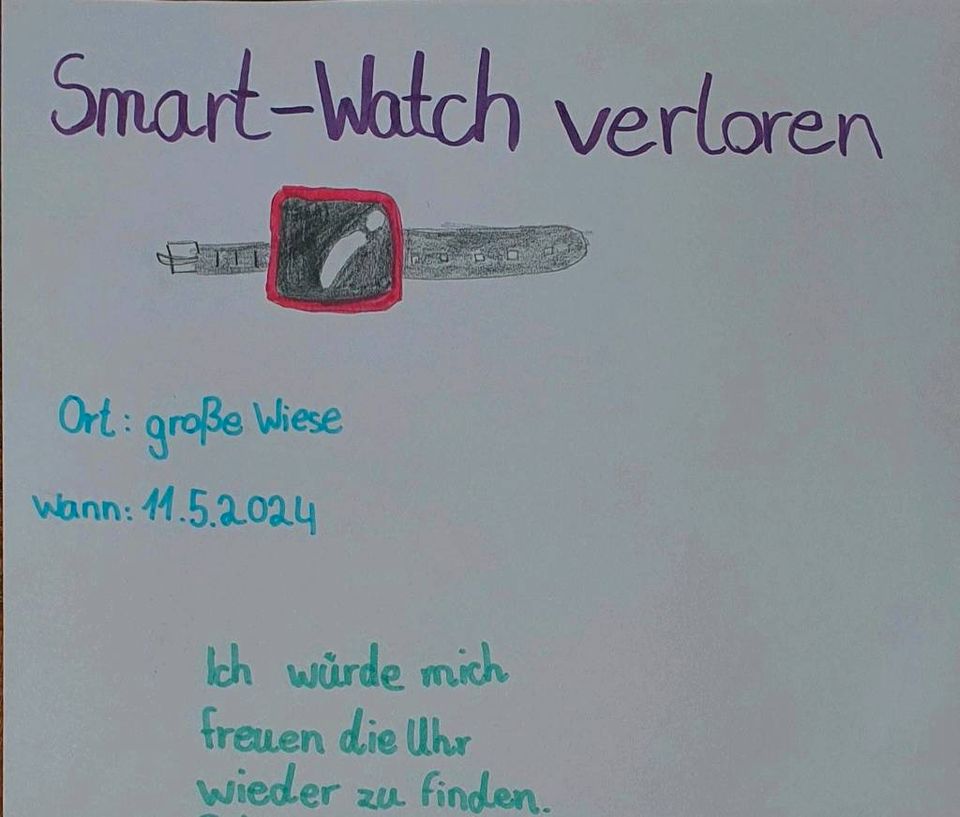 Smart-Watch verloren
Ort: große Wiese
Wann: 11.5.2024
Ich würde mich
freuen die Uhr
wieder zu finden.